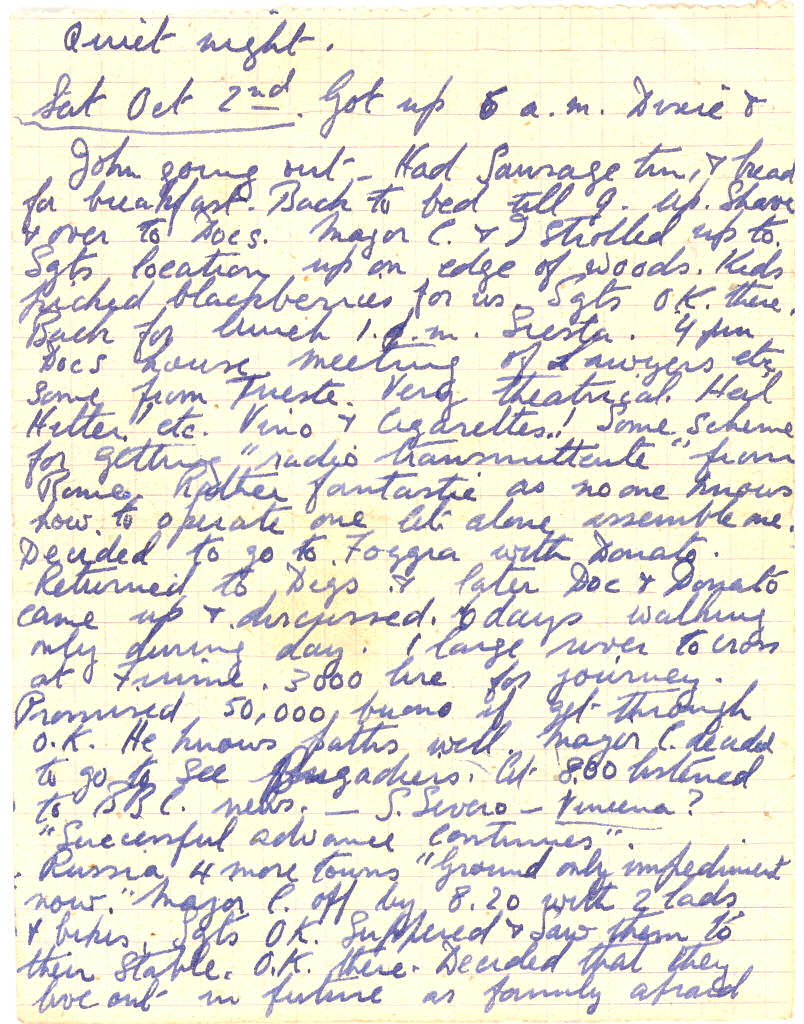 Quiet night.
Sat Oct 2nd. Got up 5 a.m. Dixie &
John going out – Had Sausage tin, & bread
for breakfast. Back to bed till 9. Up. Shave
& over to Docs. Major C. & I strolled up to
Sgts location up on edge of woods. Kids
picked blackberries for us. Sgts O.K. there.
Back for lunch 1.p.m. Siesta. 4 pm
Docs house meeting of Lawyers etc
some from Trieste. Very theatrical. Heil
Hitler! etc. Vino & Cigarettes.! Some scheme
for getting "radio transmittente" from
Rome. Rather fantastic as no one knows
how to operate one let alone assemble one.
Decided to go to Foggia with Donato.
Returned to Digs & later Doc & Donato
came up & discussed. 6 days walking
only during day. 1 large river to cross
at Fiume. 3000 lire for journey.
Promised 50,000 buono if get through
O.K. He knows paths well. Major C. decided
to go to see . At 8.00 listened
to B.B.C. news. – S. Severo – Vincena?
"Successful advance continues".
Russia 4 more towns "Ground only impediment
now." Major C. off by 8.20 with 2 lads
& bikes. Sgts OK. Suppered & saw them to
their stable. O.K. there. Decided that they
live out in future as family afraid